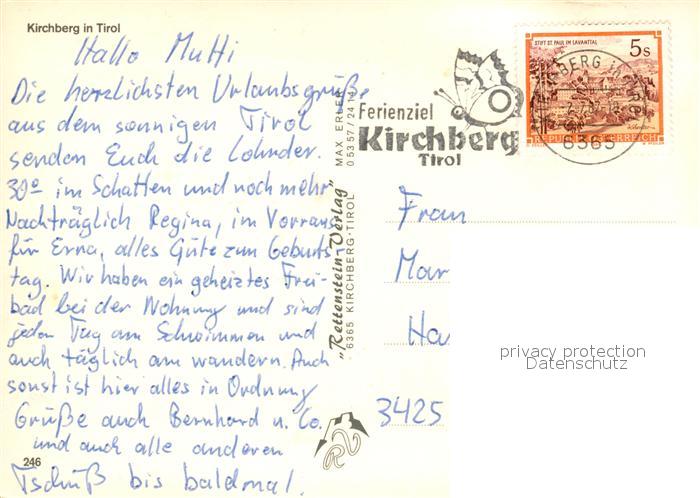 Kirchberg in Tirol
Hallo Mutti
Die herzlichsten Urlaubsgrüße
aus dem sonnigen Tirol
senden Euch die Lohnder.
30° im Schatten und noch mehr
Nachträglich Regina, im Vorraus
für Erna, alles Gute zum Geburts-
tag. Wir haben ein geheiztes Frei-
bad bei der Wohnung und sind
jeden Tag am Schwimmen und
auch täglich am wandern. Auch
sonst ist hier alles in Ordnung
Grüße auch Bernhard u. Co.
und auch alle anderen
Tschüß bis baldmal.
246
"Rettenstein-Verlag"
6365 KIRCHBERG-TIROL
MAX ERLER
0 53 57 / 24 1
Ferienziel
Kirchberg
Tirol
STIFT ST. PAUL IM LAVANTTAL
5 S
REPUBLIK ÖSTERREICH
6365
RV
Frau
Mar
Ha
3425
privacy protection
Datenschutz